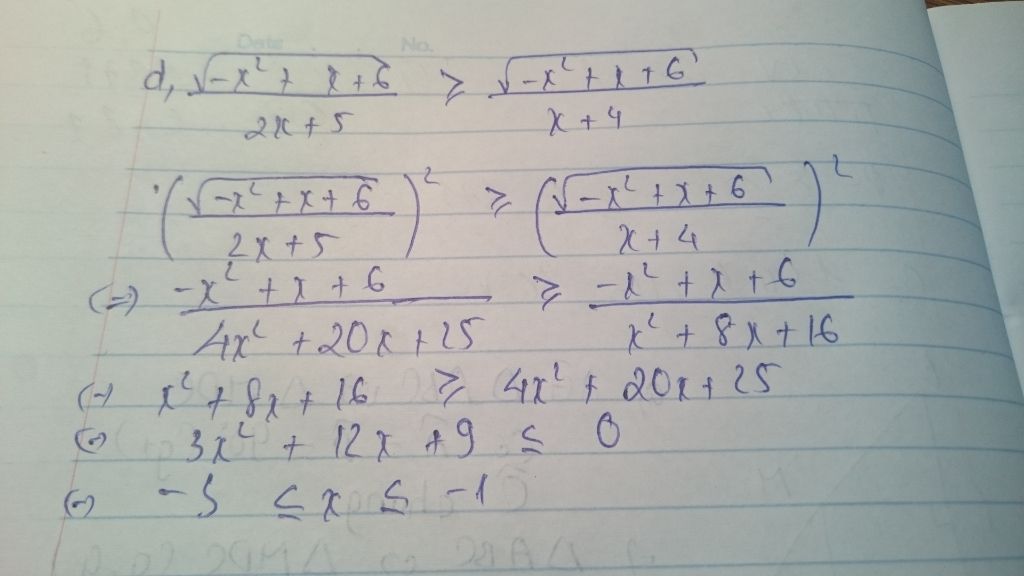 Date No.
d, √(-x² + x + 6) / (2x + 5) ≥ √(-x² + x + 6) / (x + 4)
(√(-x² + x + 6) / (2x + 5))² ≥ (√(-x² + x + 6) / (x + 4))²
(=) (-x² + x + 6) / (4x² + 20x + 25) ≥ (-x² + x + 6) / (x² + 8x + 16)
(-) x² + 8x + 16 ≥ 4x² + 20x + 25
(=) 3x² + 12x + 9 ≤ 0
(=) -3 ≤ x ≤ -1